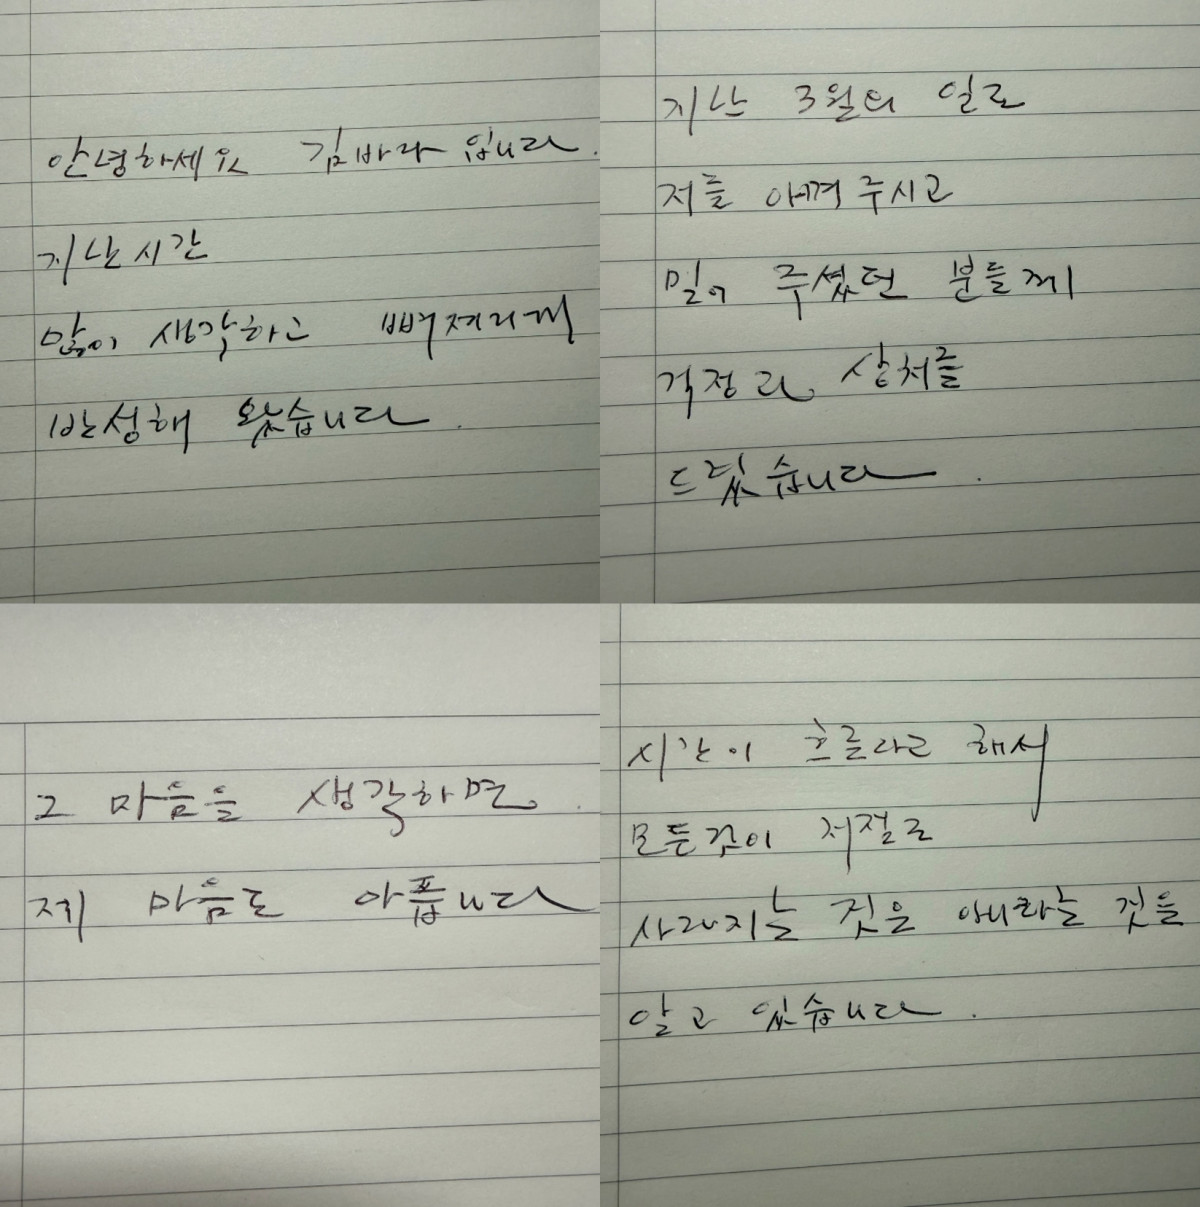 안녕하세요 김바라 입니다.
지난 시간
많이 생각하고 뼈저리게
반성해 왔습니다.
지난 3월의 일로
저를 아껴 주시고
믿어 주셨던 분들께
걱정과 상처를
드렸습니다.
그 마음을 생각하면.
제 마음도 아픕니다
시간이 흐른다고 해서
모든것이 저절로
사라지는 것은 아니라는 것을
알고 있습니다.